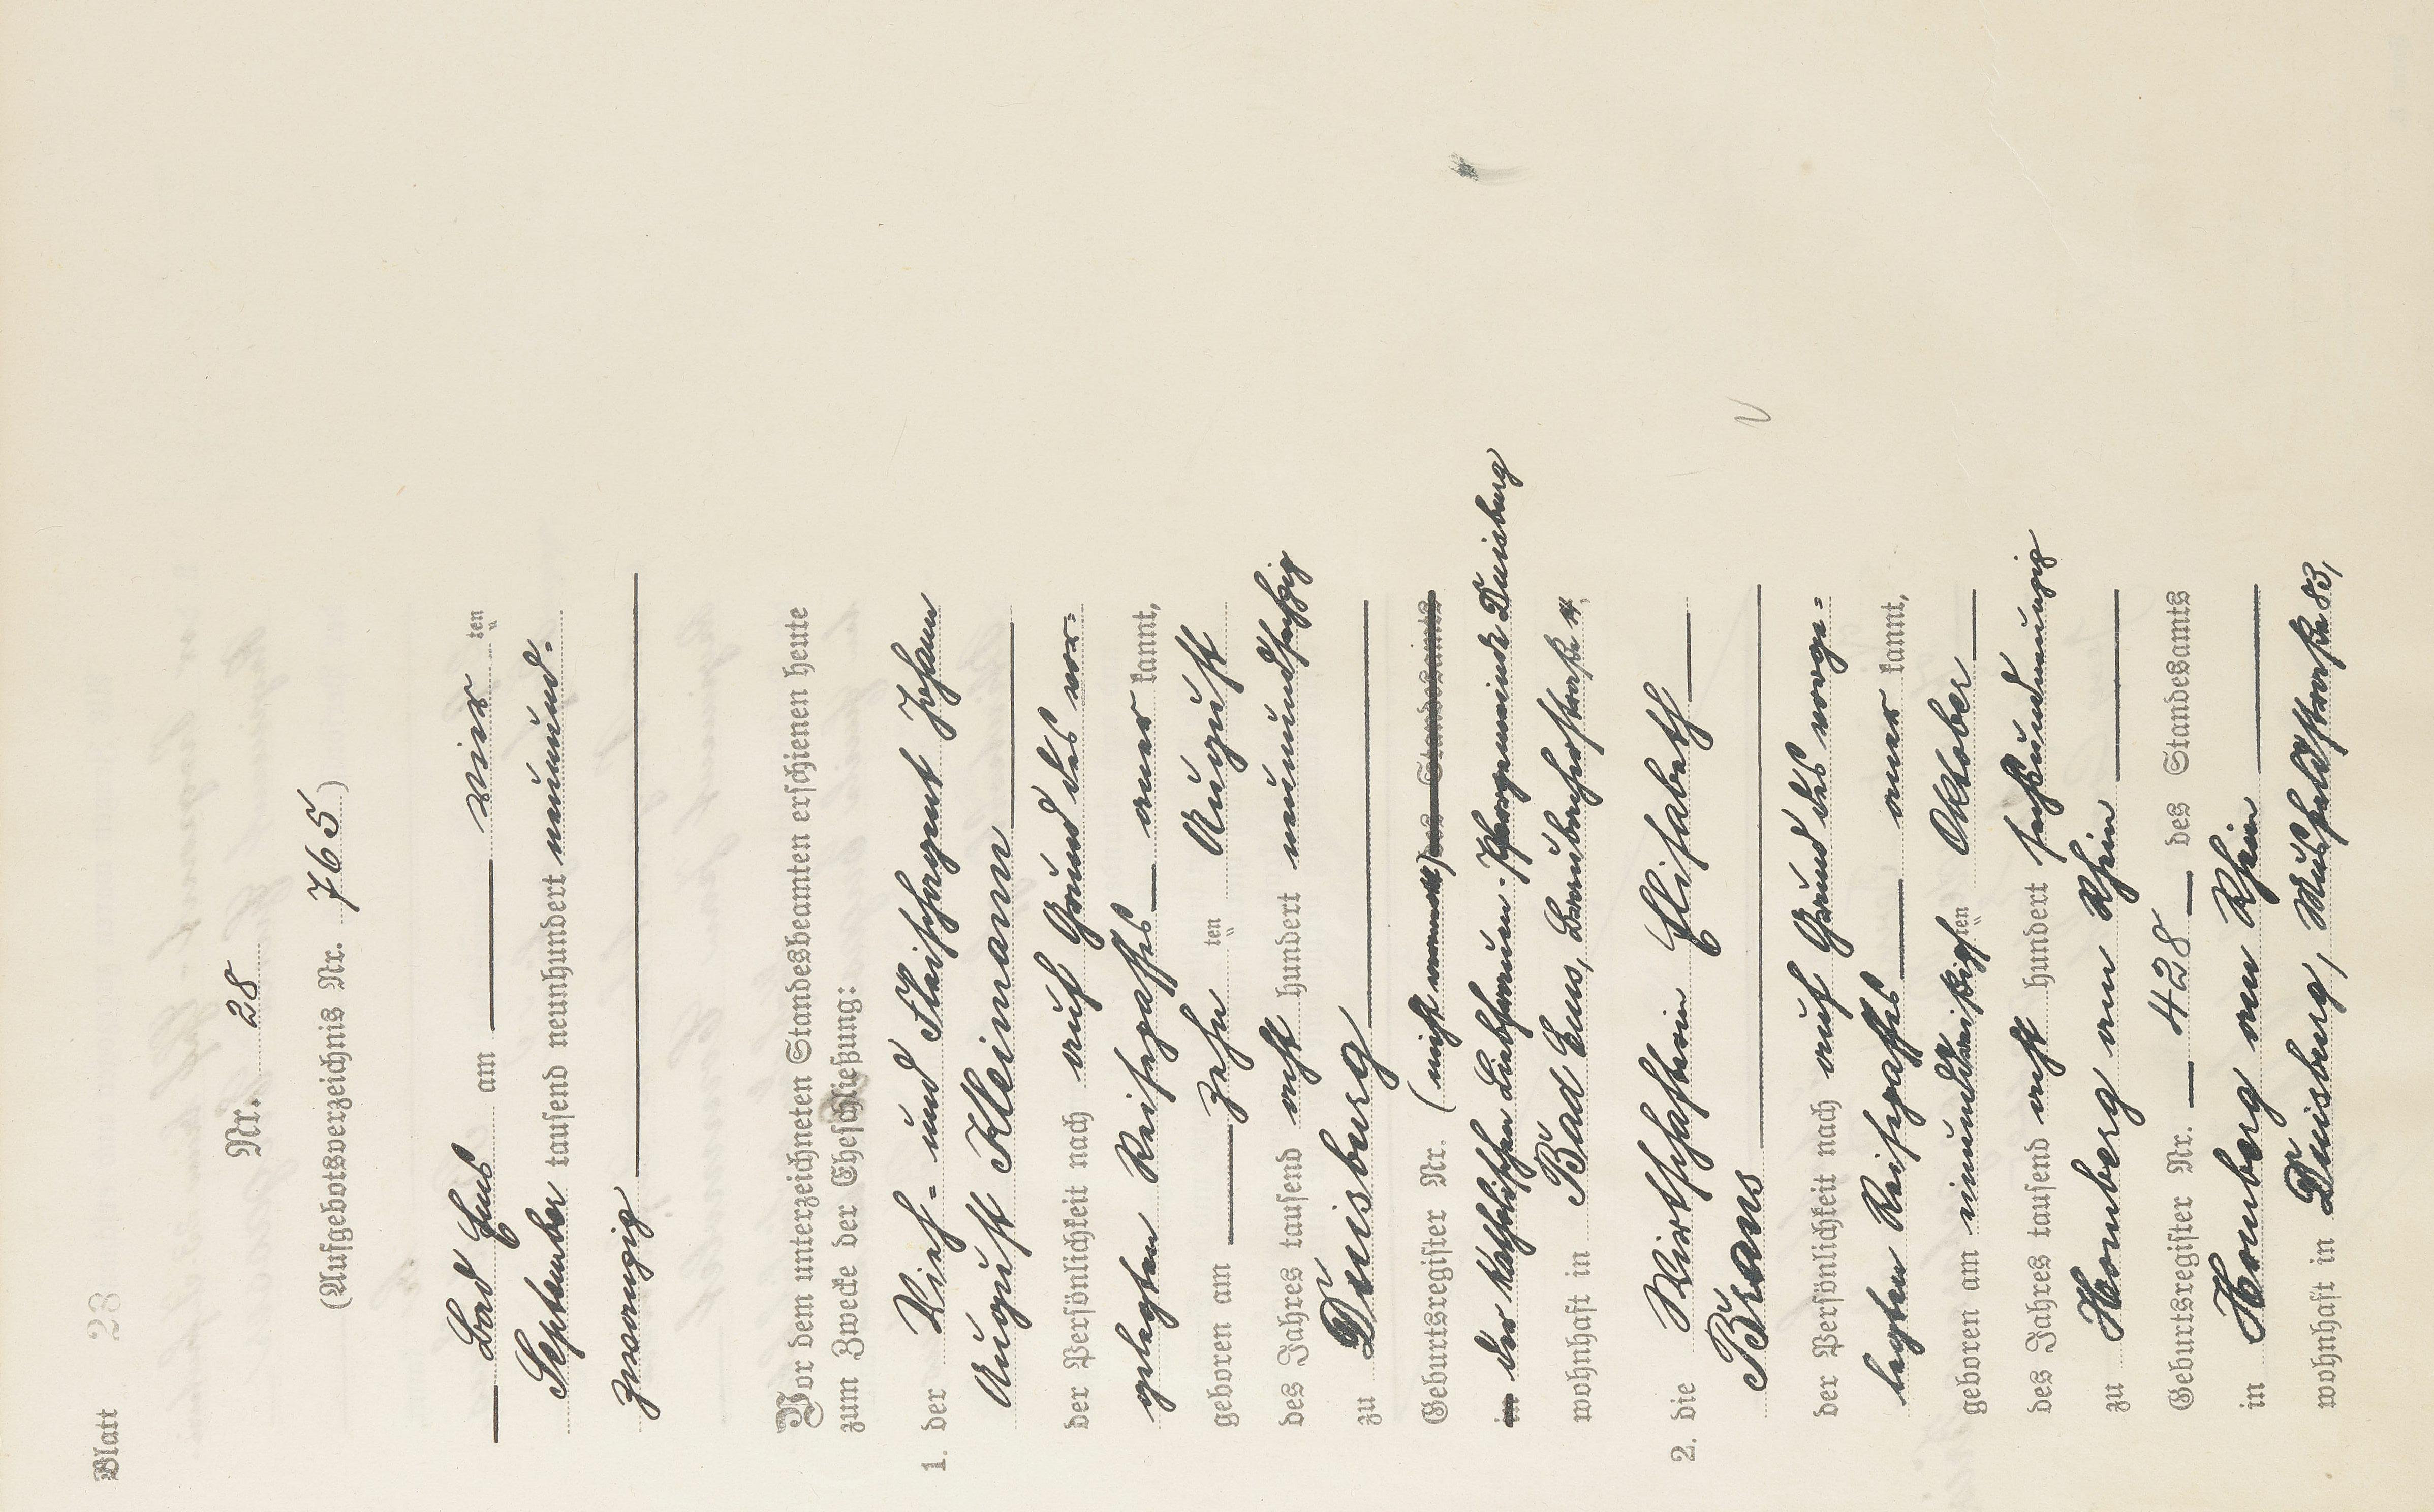 Blatt 28
Nr. 28
(Aufgebotsverzeichnis Nr. 765)
Bad Ems am vier ten
September tausend neunhundert neunund-
zwanzig
Vor dem unterzeichneten Standesbeamten erschienen heute
zum Zwecke der Eheschließung:
1. der Vieh- und Fleischagent Johann
August Kleimann
der Persönlichkeit nach auf Grund des vor-
gelegten Reisepasses aner kannt,
geboren am zehn ten August
des Jahres tausend acht hundert neunundsechzig
zu Duisburg
Geburtsregister Nr. (nicht des Standesamts
in der katholischen Liebfrauen-Pfarrgemeinde Duisburg
wohnhaft in Bad Ems, Braubacherstraße 4,
2. die Wirtschafterin Elisabeth
Braus
der Persönlichkeit nach auf Grund des vorge-
legten Reisepasses aner kannt,
geboren am einunddreißigsten Oktober
des Jahres tausend acht hundert sechsundneunzig
zu Homberg am Rhein
Geburtsregister Nr. 428 des Standesamts
in Homberg am Rhein
wohnhaft in Duisburg, Musfeldstraße 83,